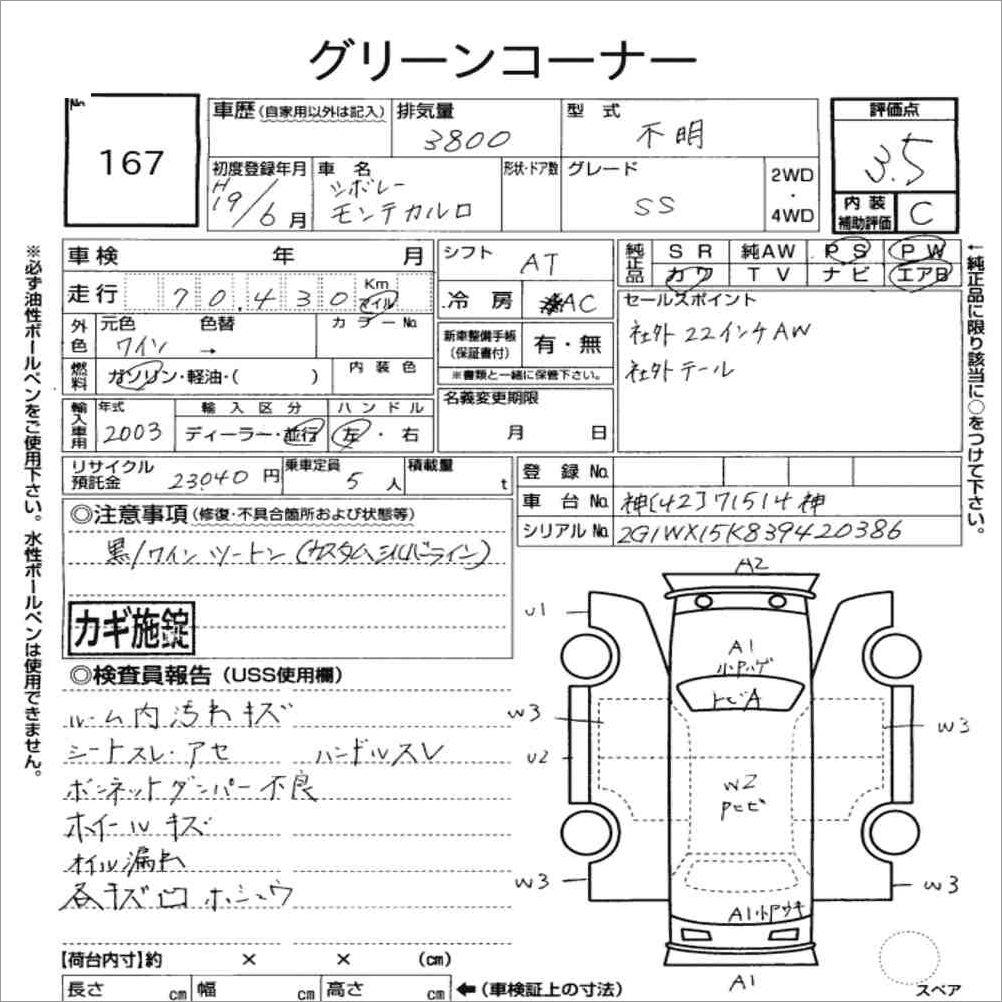 グリーンコーナー
No. 167
車歴 (自家用以外は記入)
排気量 3800
型式 不明
評価点 3.5
初度登録年月 H19/6月
車名 シボレー モンテカルロ
形状・ドア数
グレード SS
2WD ・ 4WD
内装補助評価 C
車検 年 月
シフト AT
純正品 SR 純AW PS PW
カワ TV ナビ エアB
走行 70,430 Km マイル
冷房 AC
セールスポイント
社外22インチAW
社外テール
外色 元色 ワイン 色替 →
カラーNo.
新車整備手帳(保証書付) 有・無
※書類と一緒に保管下さい。
燃料 ガソリン・軽油・( )
内装色
輸入車用 年式 2003
輸入区分 ディーラー・並行
ハンドル 左・右
名義変更期限 月 日
リサイクル預託金 23040円
乗車定員 5人
積載量 t
登録No.
車台No. 神[42]71514神
シリアルNo. 2G1WX15K839420386
◎注意事項(修復・不具合箇所および状態等)
黒/ワイン ツートン(カスタムシルバーライン)
カギ施錠
◎検査員報告(USS使用欄)
ルーム内汚れキズ
シートスレ・アセ ハンドルスレ
ボンネットダンパー不良
ホイールキズ
オイル漏れ
各キズ凹ホシュウ
【荷台内寸】約 × × (cm)
長さ cm 幅 cm 高さ cm ←(車検証上の寸法)
A2
U1
A1
小アハゲ
トビA
W3
W3
U2
W2
Pヒビ
W3
W3
A1小アウキ
A1
スペア
※必ず油性ボールペンをご使用下さい。水性ボールペンは使用できません。
←純正品に限り該当に○をつけて下さい。